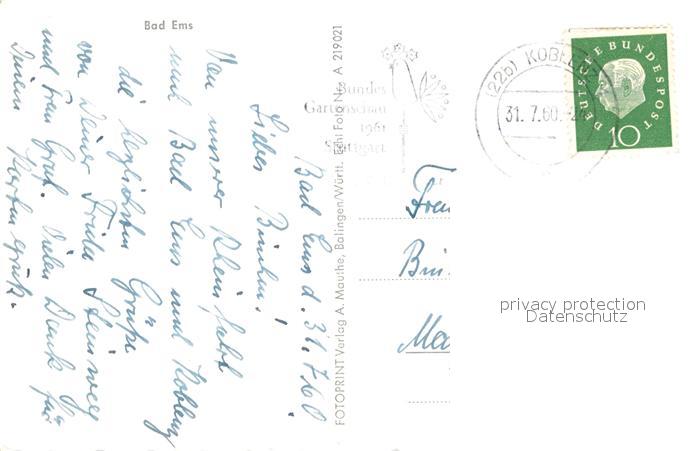 Bad Ems
Bad Ems d. 31.7.60.
Liebes Binchen!
Von unserer Rheinfahrt
nach Bad Ems und Koblenz
die herzlichsten Grüße
von Deiner Frieda
und Frau Graf. Vielen Dank für
Deinen Kartengruß.
FOTOPRINT Verlag A. Mauthe, Balingen/Württ. Echt Foto Nr. A 219021
Bundes
Gartenschau
1961
Stuttgart
(22b) KOBLENZ
31. 7. 60.
DEUTSCHE BUNDESPOST
10
privacy protection
Datenschutz